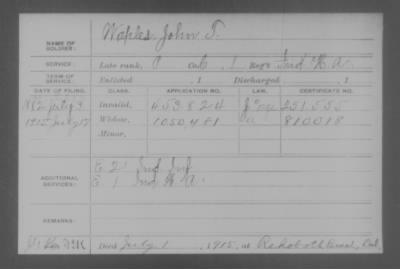 NAME OF SOLDIER: Waples, John T.
SERVICE: Late rank, P Co. 1 Reg't Ind H. A.
TERM OF SERVICE: Enlisted , 1 Discharged , 1
DATE OF FILING. CLASS. APPLICATION NO. LAW. CERTIFICATE NO.
Invalid, 453824 251555
1915 July 17 Widow, 1050481 810018
Minor,
ADDITIONAL SERVICES: E 21 Ind Inf
E 1 Ind H. A.
REMARKS:
Died July 1, 1915, at Rehoboth Del.